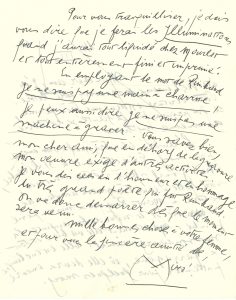 Pour vous tranquilliser, je dois
vous dire que je ferai les Illuminations
quand j'aurai tout liquidé chez Mourlot
et tout entièrement fini et imprimé.
En employant le mot de Rimbaud
je ne suis pas une main à charrue!
Je peux aussi dire je ne suis pas une
machine à graver Vous savez bien
mon cher ami, pas en dehors de la gravure
mon oeuvre exige d'autres activités.
Je vous dis ceci en l'honneur et en hommage
du très grand poète que fut Rimbaud
on va donc démarrer dès que le moment
sera venu.
mille bonnes choses à votre femme,
et pour vous la sincère amitié de
Miró!